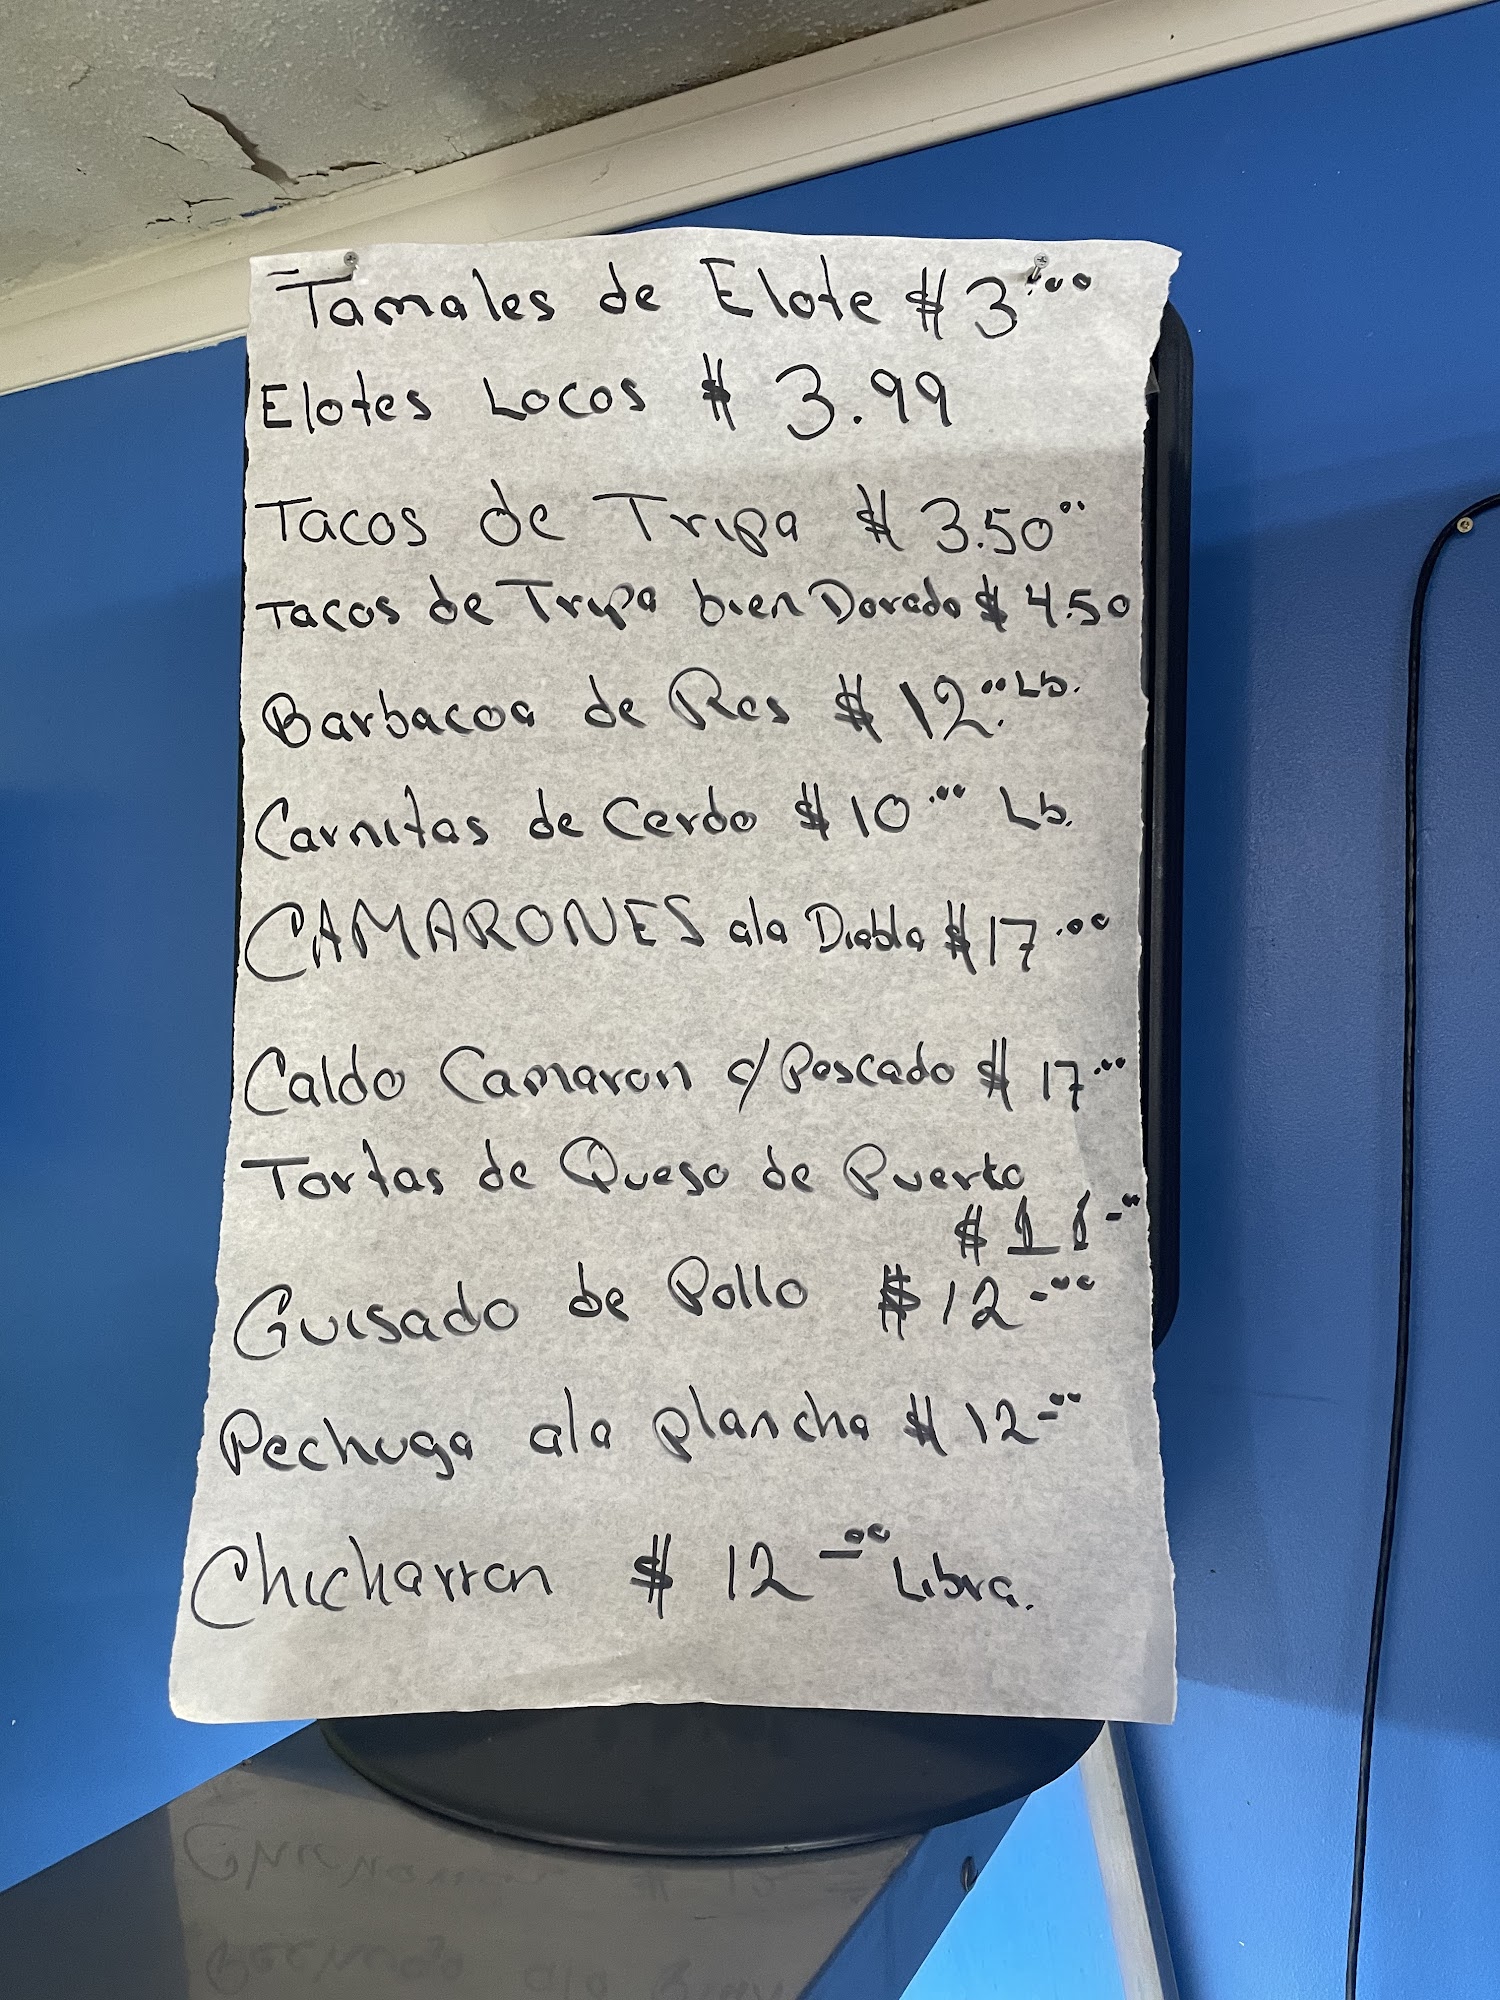 Tamales de Elote $3.00
Elotes Locos $ 3.99
Tacos de Tripa $ 3.50"
Tacos de Tripa bien Dorado $ 4.50
Barbacoa de Res $ 12.00 Lb.
Carnitas de Cerdo $10.00 Lb.
CAMARONES ala Diabla $17.00
Caldo Camaron c/Pescado $ 17.00
Tortas de Queso de Puerko
$ 11-00
Guisado de Pollo $12-00
Pechuga ala plancha $ 12-00
Chicharron $ 12-00 Libra.